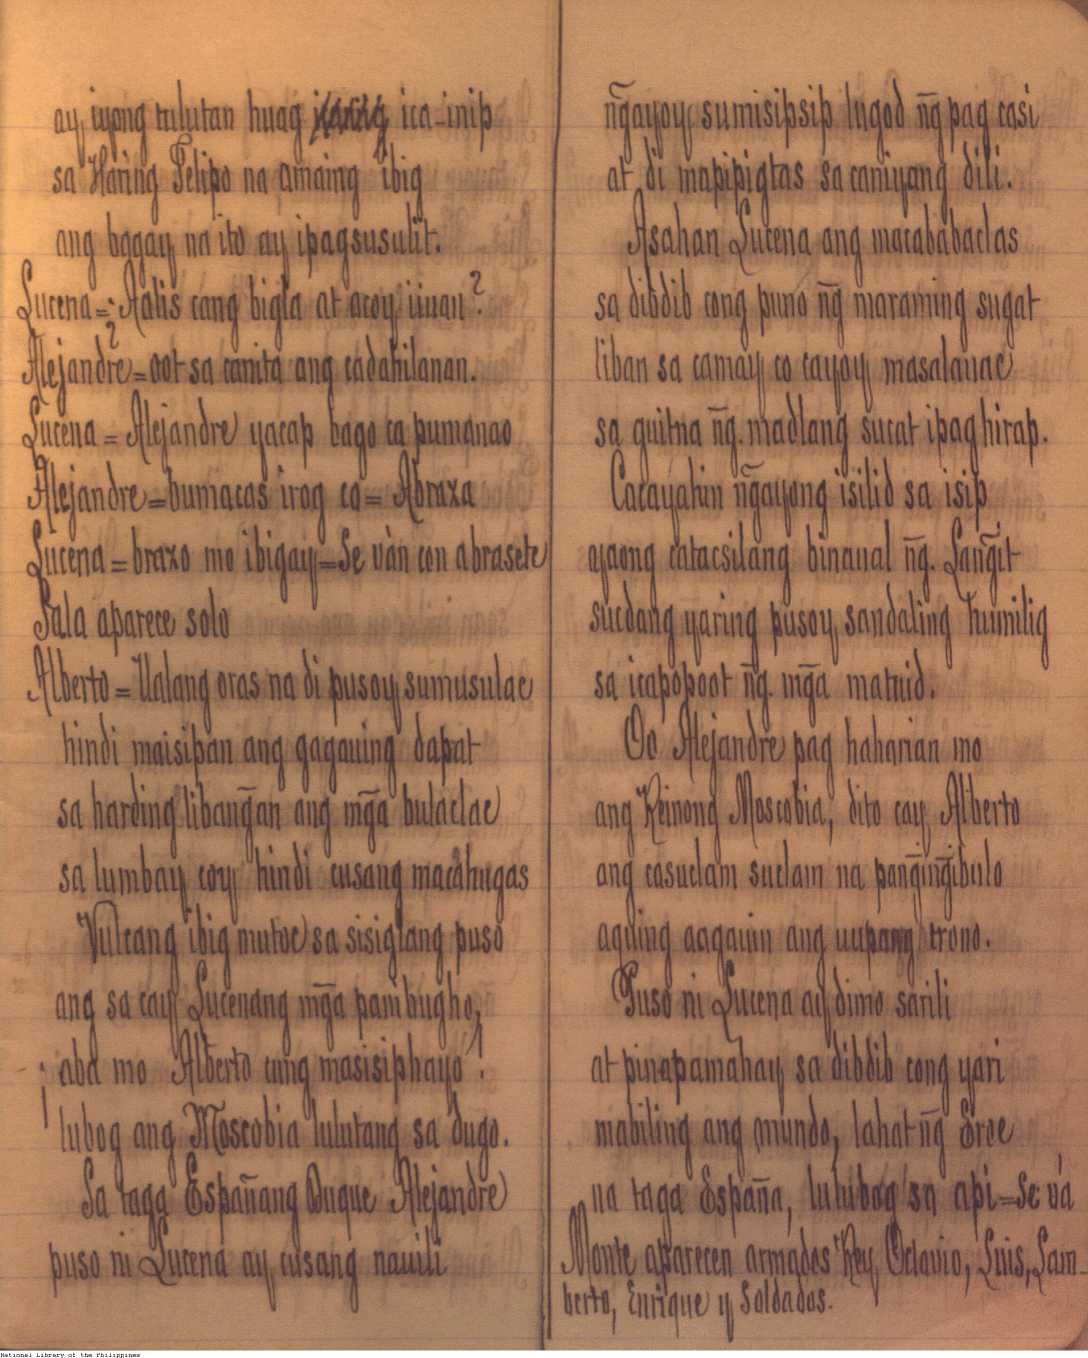 ay iyong tulutan huag ica-inip
sa Haring Felipo na amaing ibig
ang bagay na ito ay ipagsusulit.
Lucena=¿Aalis cang bigla at acoy iiuan?
Alejandre=oot sa canita ang cadahilanan.
Lucena = Alejandre yacap bago ca pumanao
Alejandre=bumacas irog co= Abraza
Lucena=brazo mo ibigay=Se vàn con abrasete
Sala aparece solo
Alberto = Ualang oras na di pusoy sumusulac
hindi maisipan ang gagauing dapat
sa harding libang̃an ang mg̃a bulaclac
sa lumbay coy hindi cusang macahugas
Vulcang ibig mutoc sa sisiglang puso
ang sa cay Lucenang mg̃a pambugho,
¡aba mo Alberto cung masisiphayo!
lubog ang Moscobia lulutang sa dugo.
Sa taga Españang Duque Alejandre
puso ni Lucena ay cusang nauili
ñgayoy sumisipsip lugod ñg pag casi
at di mapipigtas sa caniyang dili.
Asahan Lucena ang macababaclas
sa dibdib cong puno ñg maraming sugat
liban sa camay co cayoy masalauac
sa guitna ñg. madlang sucat ipaghirap.
Cacayahin ñgayong isilid sa isip
ayaong catacsilang binaual ñg. Lang̃it
sucdang yaring pusoy sandaling humilig
sa icapopoot ñg. mg̃a matuid.
Oo Alejandre pag haharian mo
ang Reinong Moscobia, dito cay Alberto
ang casuclam suclam na pang̃ing̃ibulo
aquing aagauin ang uupang trono.
Puso ni Lucena ay dimo sarili
at pinapamahay sa dibdib cong yari
mabiling ang mundo, lahat ñg Eroe
na taga España, lulubog sa api=Se vá
Monte aparecen armados Rey, Octavio, Luis, Lam-
berto, Enrique y Soldados.
National Library of the Philippines